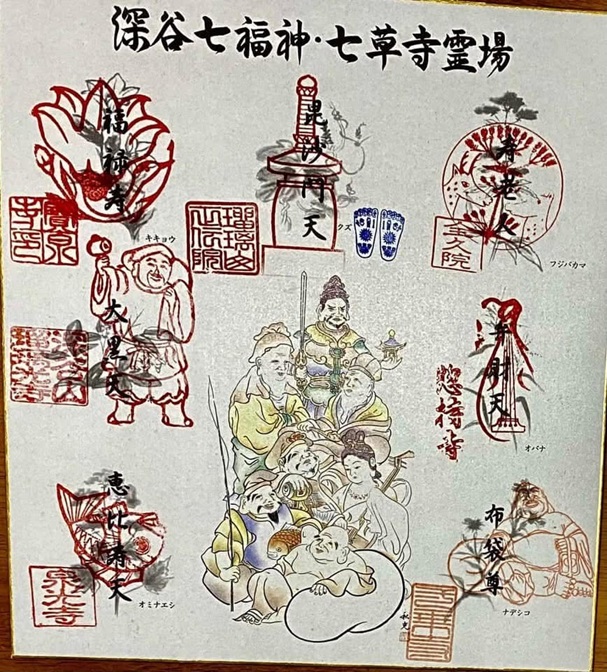 深谷七福神・七草寺霊場
福禄寿
キキョウ
毘沙門天
クズ
寿老人
フジバカマ
大黒天
弁財天
オバナ
恵比寿天
オミナエシ
布袋尊
ナデシコ
瑠璃山
正伝院
全久院
泉光寺